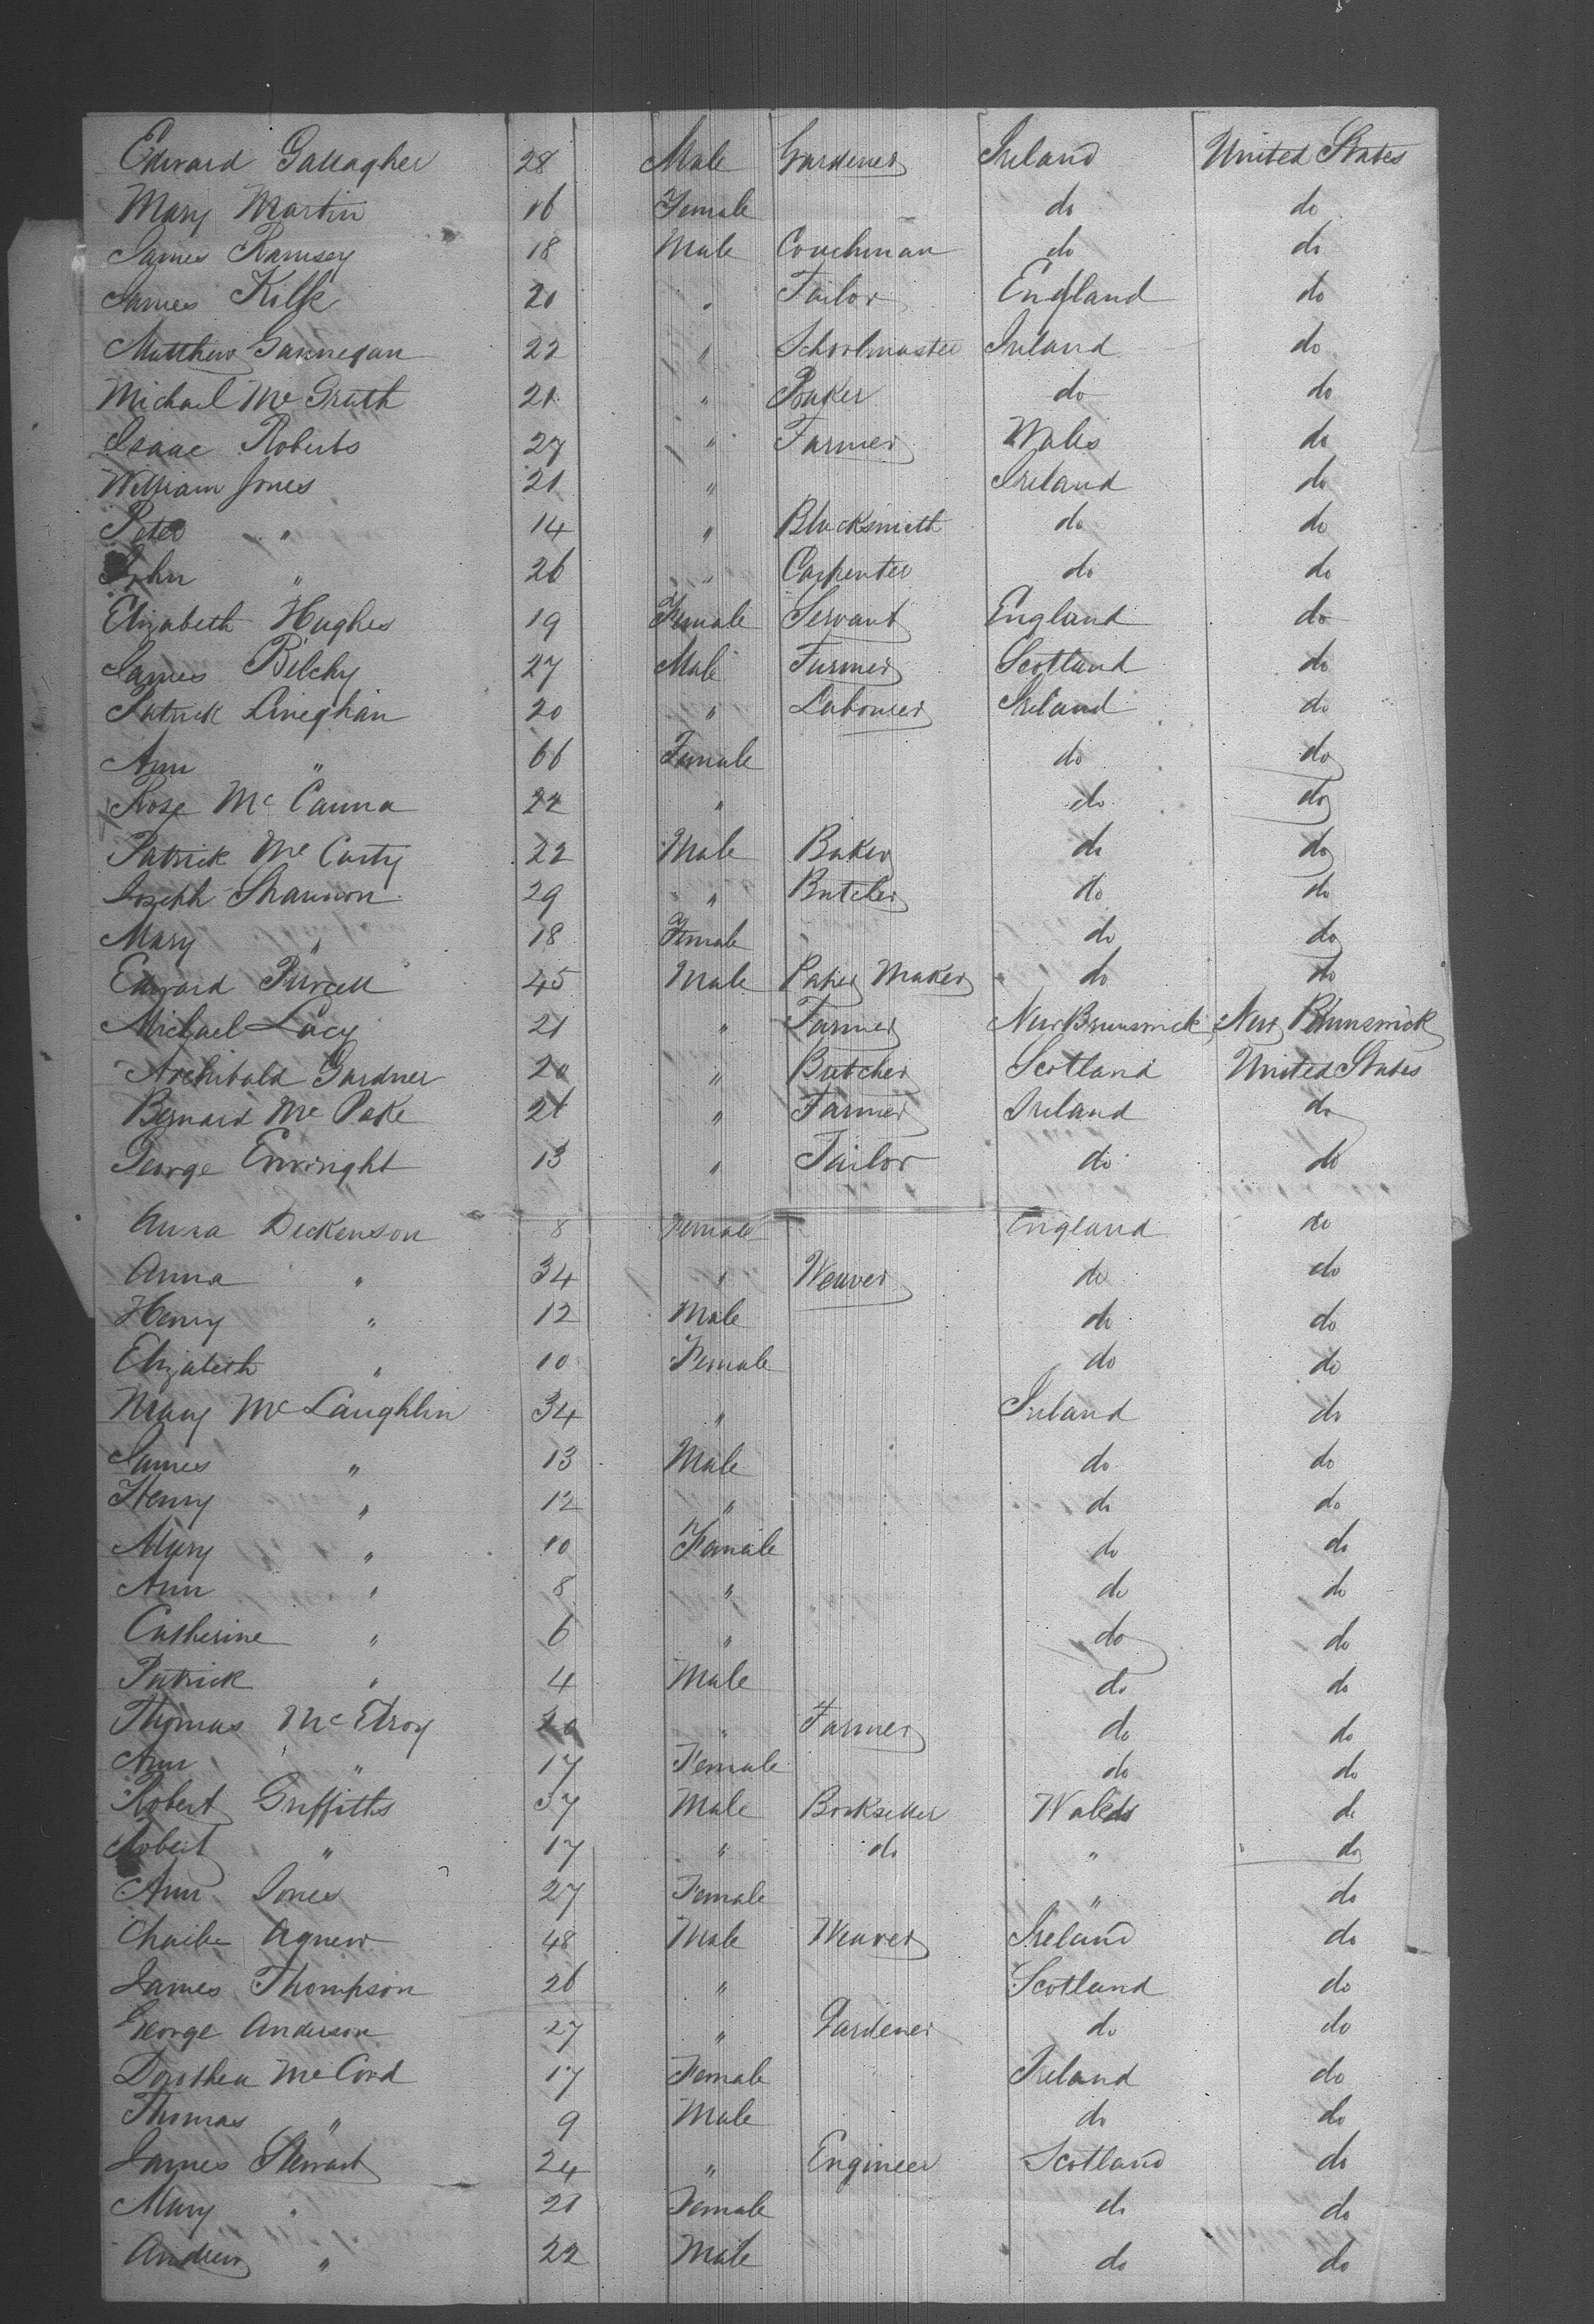 Edward Gallagher 28 Male Gardener Ireland United States
Mary Martin 16 Female do do
James Ramsey 18 Male Coachman do do
James Kilk 20 " Tailor England do
Matthew Gannegan 22 " Schoolmaster Ireland do
Michael McGrath 21 " Baker do do
Isaac Roberts 27 " Farmer Wales do
William Jones 21 " Ireland do
Peter " 14 " Blacksmith do do
John " 26 " Carpenter do do
Elizabeth Hughes 19 Female Servant England do
James Bilchy 27 Male Farmer Scotland do
Patrick Lineghan 20 " Labourer Ireland do
Ann " 66 Female do do
Rose McCanna 22 " do do
Patrick McCarty 22 Male Baker do do
Joseph Shannon 29 " Butcher do do
Mary " 18 Female do do
Edward Purcell 45 Male Paper Maker do do
Michael Lacy 21 " Farmer New Brunswick New Brunswick
Archibald Gardner 20 " Butcher Scotland United States
Bernard McPake 21 " Farmer Ireland do
George Enwright 13 " Tailor do do
Anna Dickenson 8 Female England do
Anna " 34 " Weaver do do
Henry " 12 Male do do
Elizabeth " 10 Female do do
Mary McLaughlin 34 " Ireland do
James " 13 Male do do
Henry " 12 " do do
Mary " 10 Female do do
Ann " 8 " do do
Catherine " 6 " do do
Patrick " 4 Male do do
Thomas McElroy 20 " Farmer do do
Ann " 17 Female do do
Robert Griffiths 37 Male Bookseller Wales do
Robert " 17 " do " do
Ann Jones 27 Female " do
Agnew 48 Male Weaver Ireland do
James Thompson 26 " Scotland do
George Anderson 27 " Gardener do do
Dorothea McCord 17 Female Ireland do
Thomas " 9 Male do do
James Stewart 24 " Engineer Scotland do
Mary " 21 Female do do
Andrew " 22 Male do do